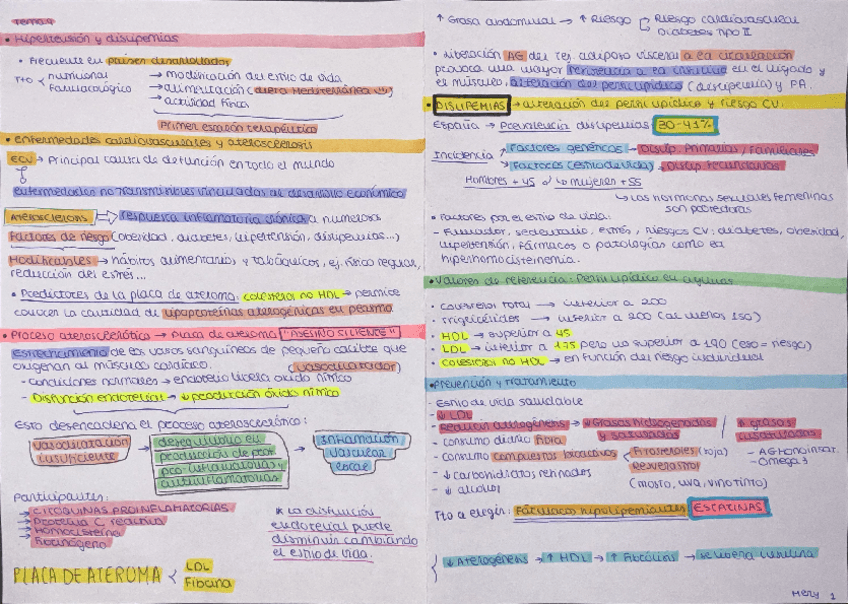 Tema 9
• Hipertensión y dislipemias
• Frecuente en países desarrollados
Tto < nutricional → modificación del estilo de vida
farmacológico → alimentación (dieta Mediterránea)
→ actividad física
Primer escalón terapéutico
• Enfermedades cardiovasculares y aterosclerosis
ECV → Principal causa de defunción en todo el mundo
enfermedades no transmisibles vinculadas al desarrollo económico
Aterosclerosis → respuesta inflamatoria crónica a numerosos
Factores de riesgo (obesidad, diabetes, hipertensión, dislipemias...)
Modificables → hábitos alimentarios y tabáquicos, ej. físico regular,
reducción del estrés...
• Predictores de la placa de ateroma: colesterol no HDL → permite
conocer la cantidad de lipoproteínas aterogénicas en plasma
• Proceso aterosclerótico → placa de ateroma "ASESINO SILENTE"
Estrechamiento de los vasos sanguíneos de pequeño calibre que
oxigenan al músculo cardíaco. (vasodilatador)
- Condiciones normales → endotelio libera óxido nítrico
- Disfunción endotelial → ↓ producción óxido nítrico
Esto desencadena el proceso aterosclerótico:
vasodilatación insuficiente → desequilibrio en producción de ptor pro-inflamatorias y antiinflamatorias → Inflamación vascular local
Participantes:
→ CITOQUINAS PROINFLAMATORIAS
→ Proteína C reactiva
→ Homocisteína
→ Fibrinógeno
* La disfunción
endotelial puede
disminuir cambiando
el estilo de vida.
PLACA DE ATEROMA < LDL
Fibrina
↑ Grasa abdominal → ↑ Riesgo Riesgo cardiovascular
Diabetes tipo II
• Liberación AG del tej. adiposo visceral a la circulación
provoca una mayor resistencia a la insulina en el hígado y
el músculo, alteración del perfil lipídico (dislipemia) y PA.
• DISLIPEMIAS → alteración del perfil lipídico y riesgo CV.
España → Prevalencia dislipemias: 30-41%
Incidencia ↑ Factores genéticos → Dislip. Primarias / Familiares
Factores (estilo de vida) → Dislip. secundarias
Hombres + 45 ♂ mujeres + 55
↳ Las hormonas sexuales femeninas
son protectoras
• Factores por el estilo de vida:
- Fumador, sedentario, estrés, riesgos CV: diabetes, obesidad,
hipertensión, fármacos o patologías como la
hiperhomocisteinemia.
• Valores de referencia: Perfil lipídico en ayunas
• colesterol total → inferior a 200
• Triglicéridos → inferior a 200 (al menos 150)
• HDL → superior a 45
• LDL → inferior a 175 pero no superior a 190 (eso = riesgo)
• colesterol no HDL → en función del riesgo individual
• Prevención y tratamiento
- Estilo de vida saludable
- ↓ LDL
- Reducir aterogénesis → ↓ Grasas hidrogenadas y saturadas / grasas insaturadas
- consumo diario fibra - AG monoinsat.
- consumo compuestos bioactivos Fitosteroles (soja) - Omega 3
Resveratrol
- ↓ carbohidratos refinados (mosto, uva, vino tinto)
- ↓ alcohol
Tto a elegir: Fármacos hipolipemiantes ESTATINAS
↓ Aterogénesis → ↑ HDL → ↑ → insulina
Mery 1